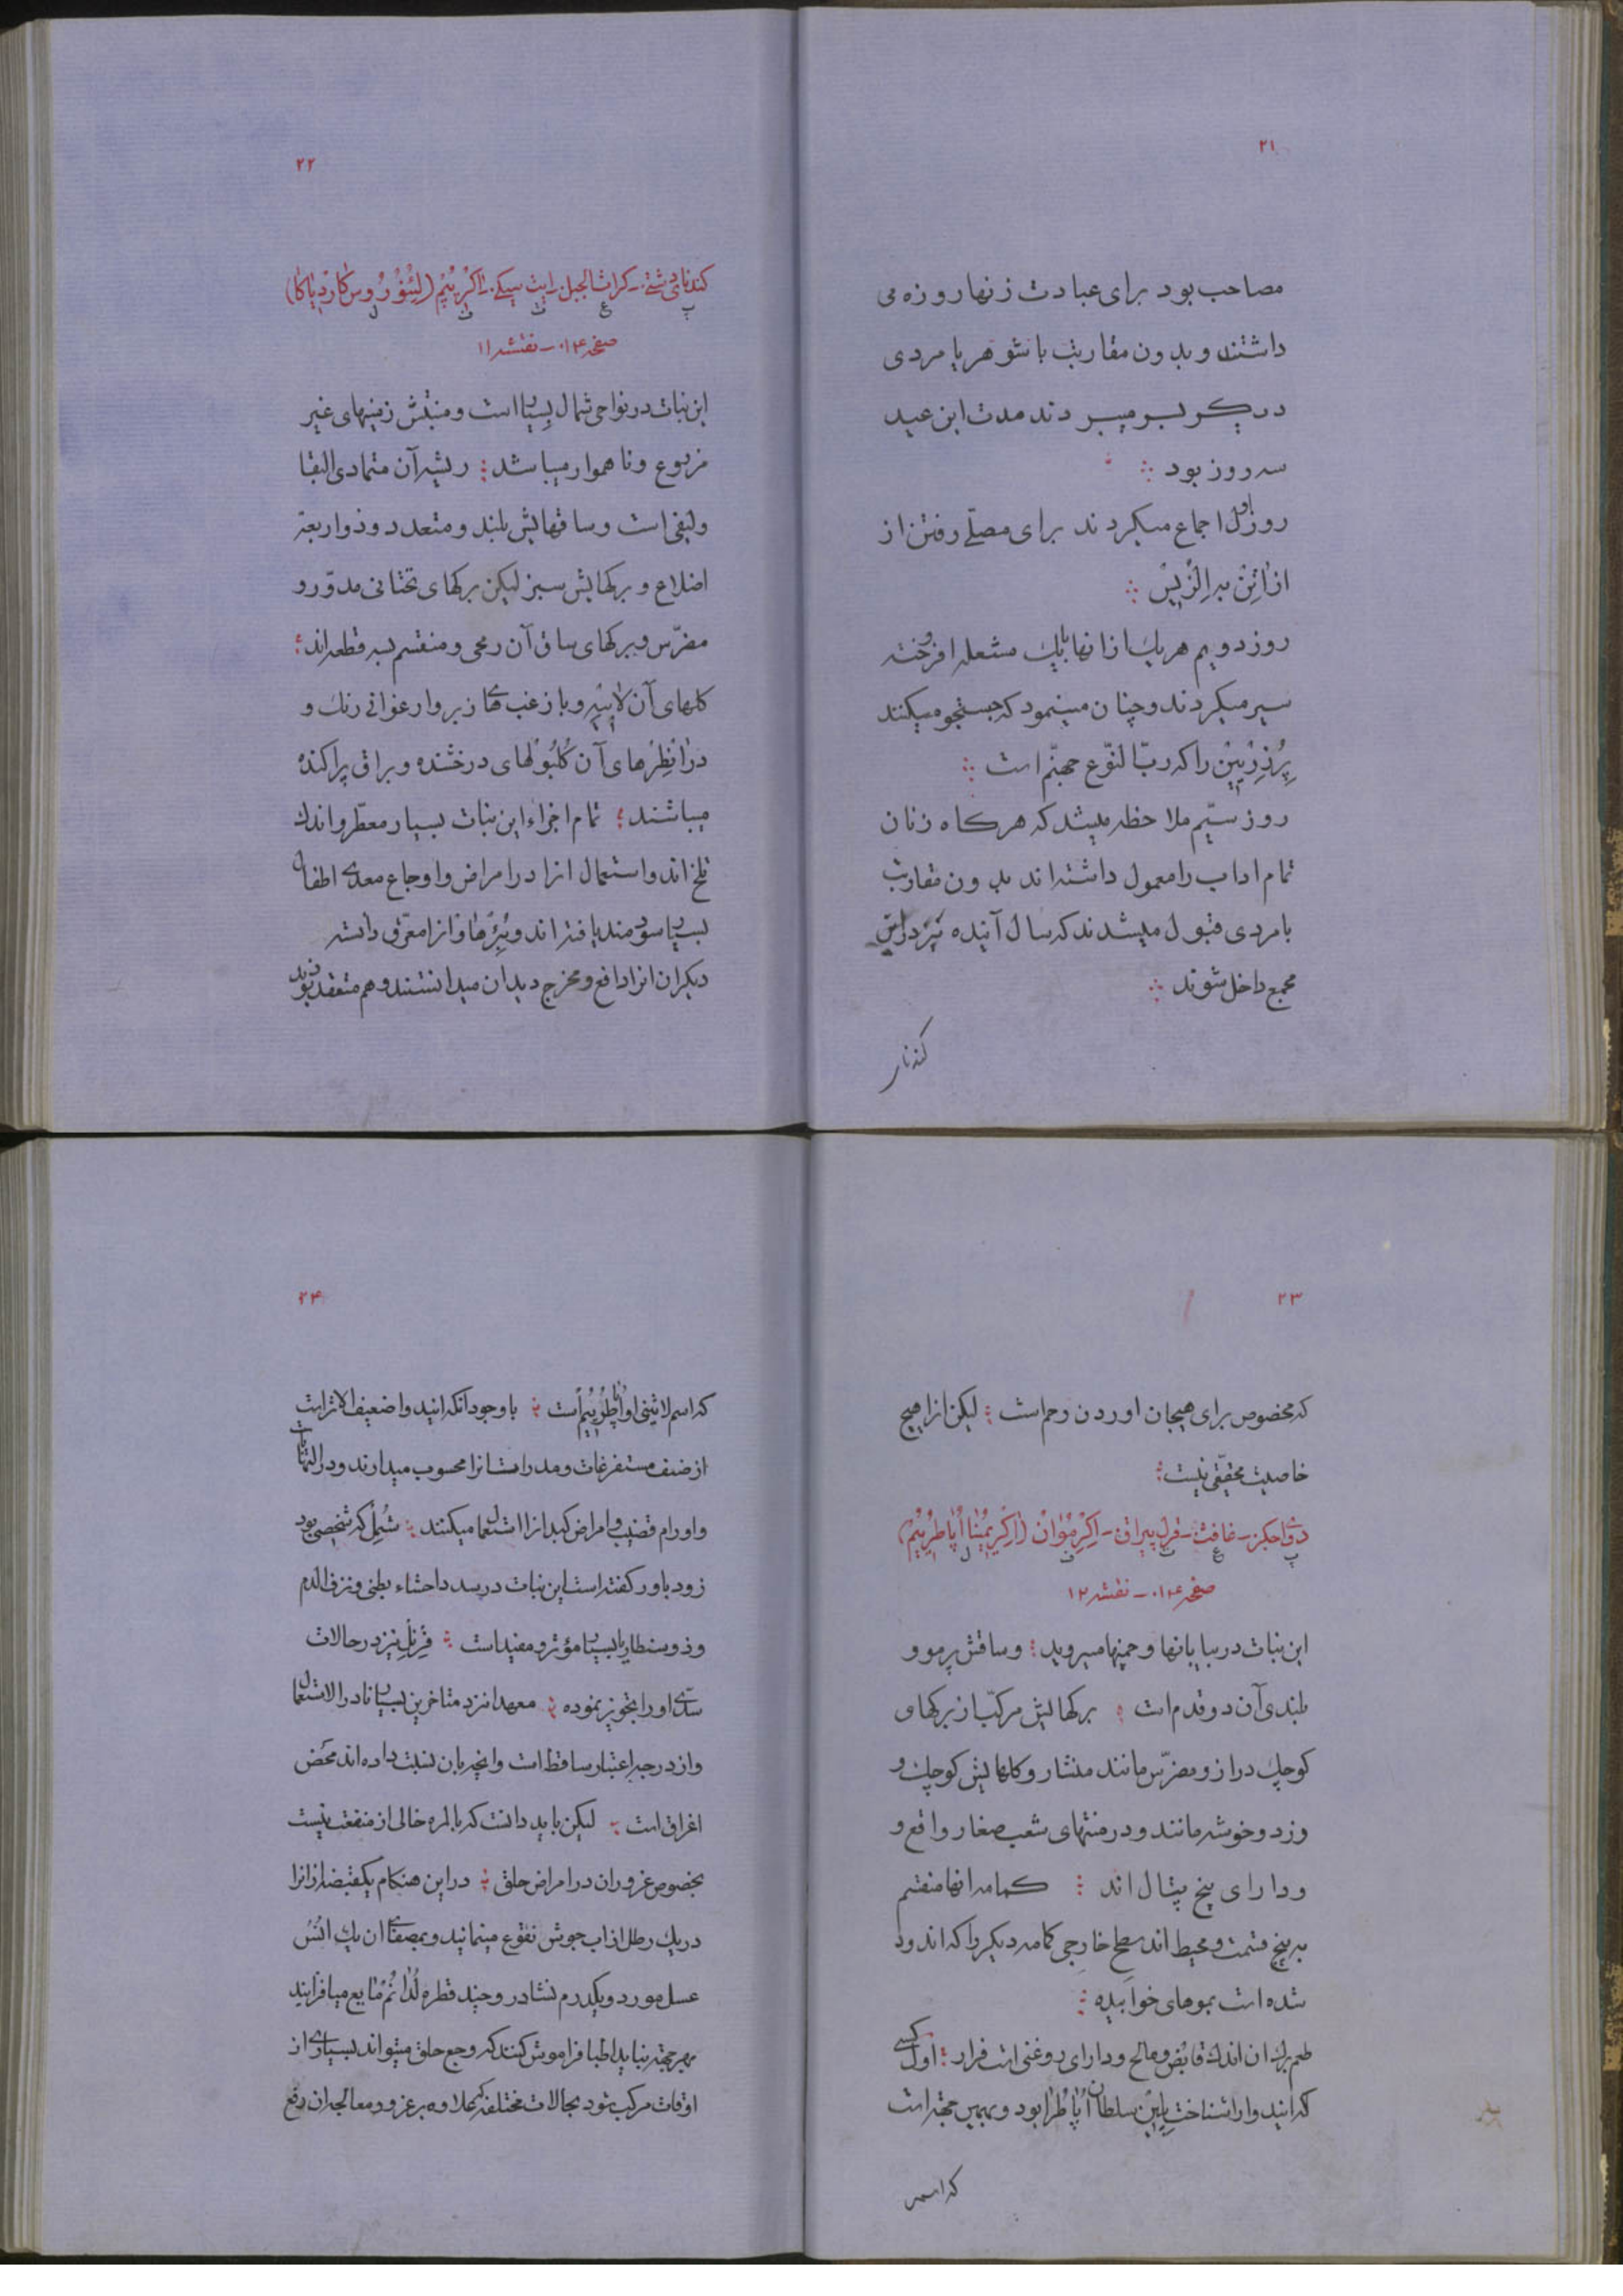 ۲۱
مصاحب بود برای عبادت زنها روزه می
داشتند و بدون مقاربت با شوهر یا مردی
دیگر بسر میبردند مدت این عید
سه روز بود
روز اول اجماع میکردند برای مصلّے رفتن از
از اتن به الزیس
روز دویم هریک از انها بایک مشعله افروخته
سیر میکردند و چنان مینمود که جستجو میکنند
پرزرپین را که ربّا لنوّع جهنّم است
روز سیّم ملاحظه میشد که هرکاه زنان
تمام اداب را معمول داشته اند بدون مقاربت
با مردی قبول میشدند که سال آینده نیز در این
مجمع داخل شوند
۲۲
کندنای دشتے ـ کراث الجبل ـ ایت سیکے ـ
صفحه ۰۱۴ ـ نقشه ۱۱
این نبات در نواحی شمال بسیار است و منبتش زمینهای غیر
مزروع و ناهموار میباشد ریشه آن متمادی البقا
و لیفی است و ساقهایش بلند و متعدد و ذواربعة
اضلاع و برکهایش سبز لیکن برکهای تحتانی مدوّر و
مضرّس و برکهای ساق آن رمحی و منقسم بسه قطعه اند
کلهای آن لابیه و با زغب ها زبر و ارغوانی رنک و
در انظرهای آن کلبولهای درخشنده و براق پراکنده
میباشند تمام اجزاء این نبات بسیار معطّر و اندک
تلخ اند و استعمال انرا در امراض و اوجاع معدی اطفال
بسیار سودمند یافته اند و انرا معرّق دانسته
دیکران انرا دافع و مخرج دیدان میدانستند و هم معتقد بودند
۲۳
که مخصوص برای هیجان اوردن رحم است لیکن ازا هیچ
خاصیت محقّقی نیست
صفحه ۰۱۴ ـ نقشه ۱۲
این نبات در بیابانها و چمنها میروید و ساقش پرمو و
بلندی آن دو قدم است برکهایش مرکّب از برکهای
کوچک دراز و مضرّس مانند منشار و کلهایش کوچک و
وزرد و خوشه مانند و در منتهای شعب صغار واقع و
و دارای پنج پتال اند کمامه انها منقسم
به پنج قسمت و محیط اند سطح خارجی کمامه دیکر را که اندود
شده است بموهای خوابیده
طعم برک ان اندک قابض و مالح و دارای روغنی است فرار اول کسی
که این دوا را شناخت سلطان اپاطرا بود و بهمین جهة است
که اسم
۲۴
که اسم لاتینی او اپاطوریم است با وجود آنکه این دوا ضعیف الاثر است
از صنف مستفرغات و مدرات انرا محسوب میدارند و در التهابات
و اورام قضیب و امراض کبد ازا استعمال میکنند شمل که شخصی بود
زود باور کفته است این نبات در سدد احشاء بطنی و نزف الدم
و ذوسنطاریا بسیار مؤثر و مفید است فرنل نیز در حالات
سدّی او را تجویز نموده معهذا نزد متاخرین بسیار نادر الاستعمال
و از درجه اعتبار ساقط است و انچه بان نسبت داده اند محض
اغراق است لیکن باید دانست که بالمره خالی از منفعت نیست
بخصوص غروران در امراض حلق در این هنکام یکقبضه ازانرا
در یک رطل از اب جوش نقوع مینمایند و بمصفای ان یک انس
عسل مورد و یکدرم نشادر و چند قطره لدانم مایع میافزایند
بهر جهة نباید اطبا فراموش کنند که وجع حلق میتواند بسیاری از
اوقات مرکب شود بحالات مختلفه که علاوه بر غرور و معالجه ان رفع